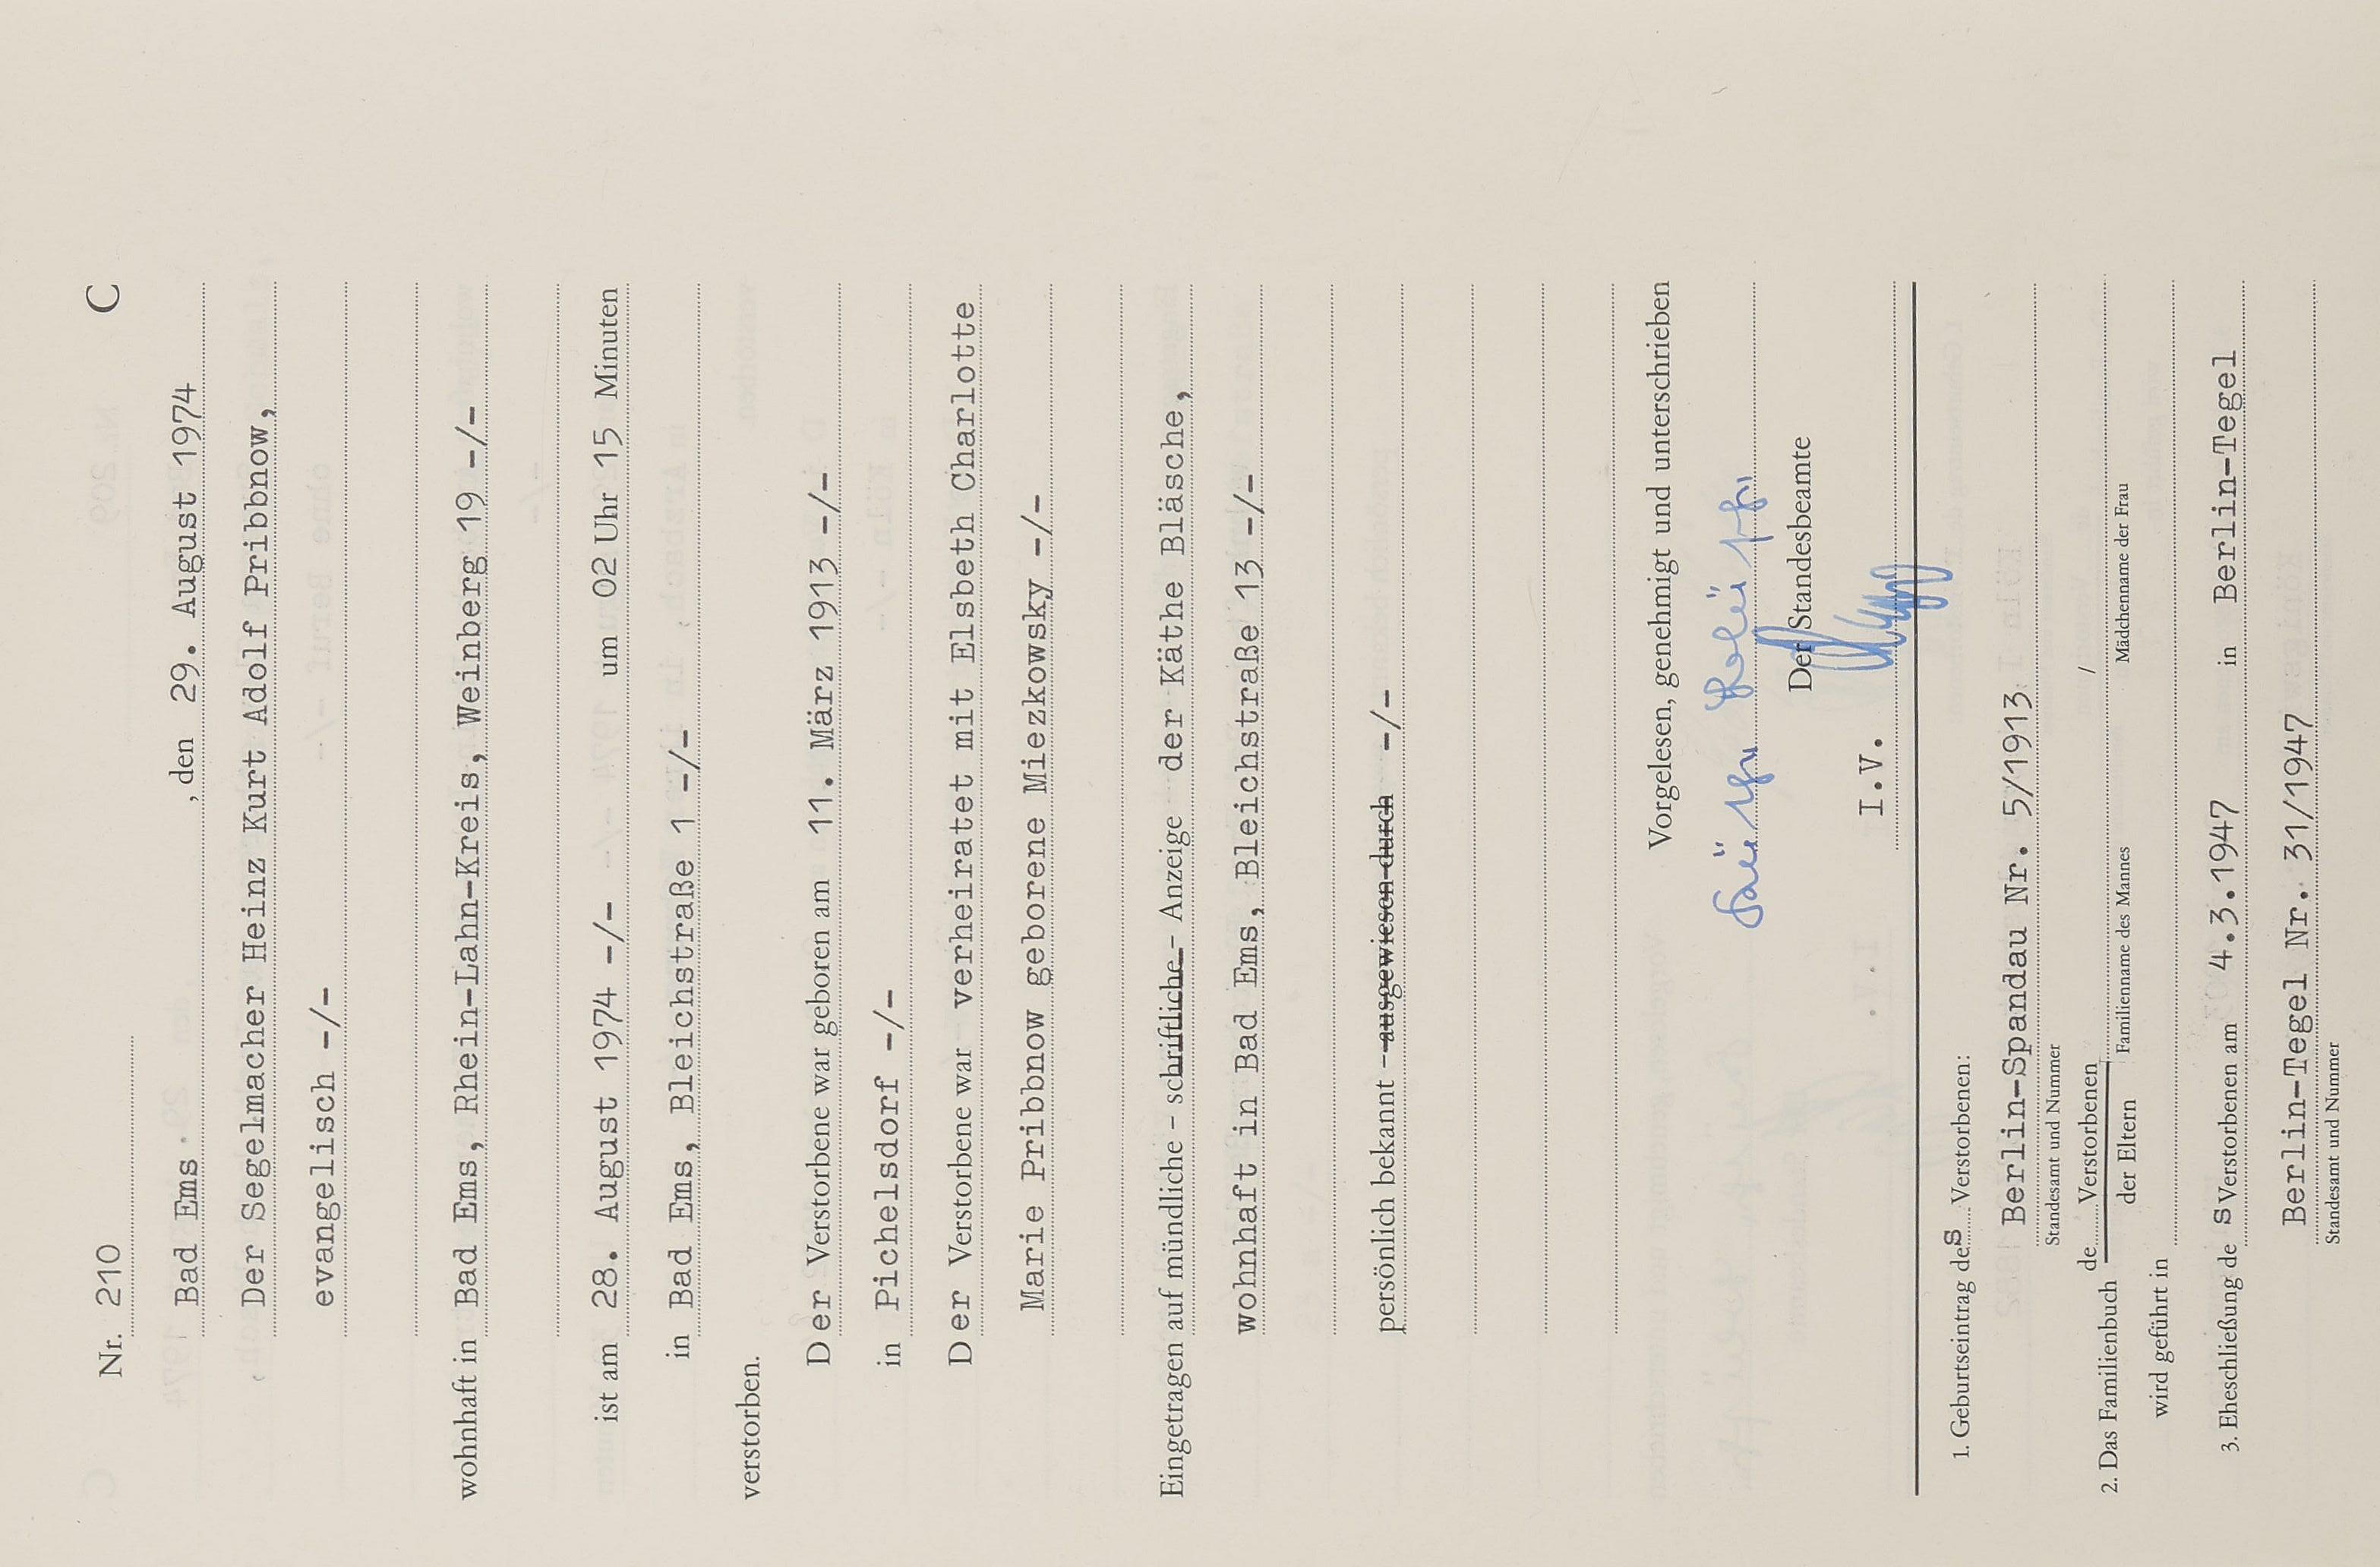 Nr. 210 C
Bad Ems , den 29. August 1974
Der Segelmacher Heinz Kurt Adolf Pribbnow,
evangelisch -/-
wohnhaft in Bad Ems, Rhein-Lahn-Kreis, Weinberg 19 -/-
ist am 28. August 1974 -/- um 02 Uhr 15 Minuten
in Bad Ems, Bleichstraße 1 -/-
verstorben.
Der Verstorbene war geboren am 11. März 1913 -/-
in Pichelsdorf -/-
Der Verstorbene war verheiratet mit Elsbeth Charlotte
Marie Pribbnow geborene Miezkowsky -/-
Eingetragen auf mündliche - schriftliche - Anzeige der Käthe Bläsche,
wohnhaft in Bad Ems, Bleichstraße 13 -/-
persönlich bekannt - ausgewiesen durch -/-
Vorgelesen, genehmigt und unterschrieben
Der Standesbeamte
I.V.
1. Geburtseintrag des Verstorbenen:
Berlin-Spandau Nr. 5/1913
Standesamt und Nummer
2. Das Familienbuch de Verstorbenen /
der Eltern Familienname des Mannes Mädchenname der Frau
wird geführt in
3. Eheschließung de s Verstorbenen am 4.3.1947 in Berlin-Tegel
Berlin-Tegel Nr. 31/1947
Standesamt und Nummer